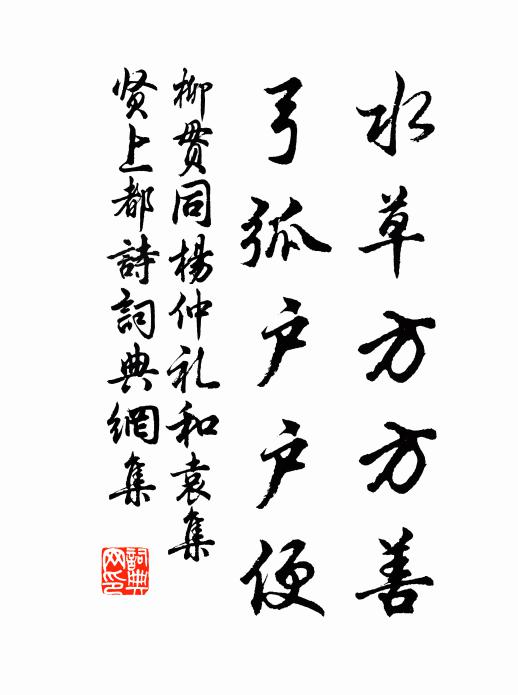 水草方方善
弓弧户户便
柳贯同楊仲礼和袁集
贤上都詩詞典網集
詞典网印